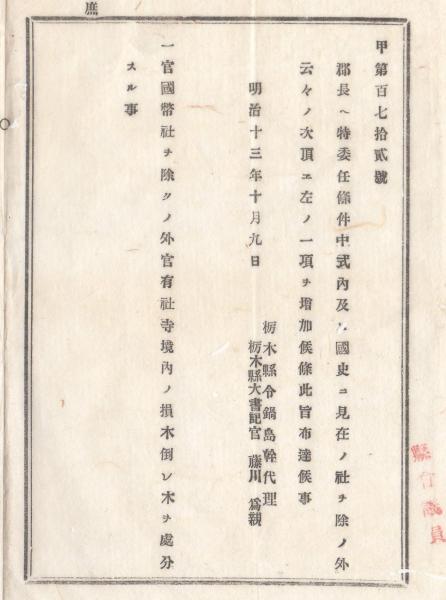 庶
甲第百七拾貳號
郡長ヘ特委任條件中式內及ヒ國史ニ見在ノ社ヲ除ノ外
云々ノ次項エ左ノ一項ヲ增加候條此旨布達候事
栃木縣令鍋島幹代理
明治十三年十月九日　栃木縣大書記官　藤川爲親
一官國幣社ヲ除クノ外官有社寺境內ノ損木倒レ木ヲ處分
スル事
縣會議員